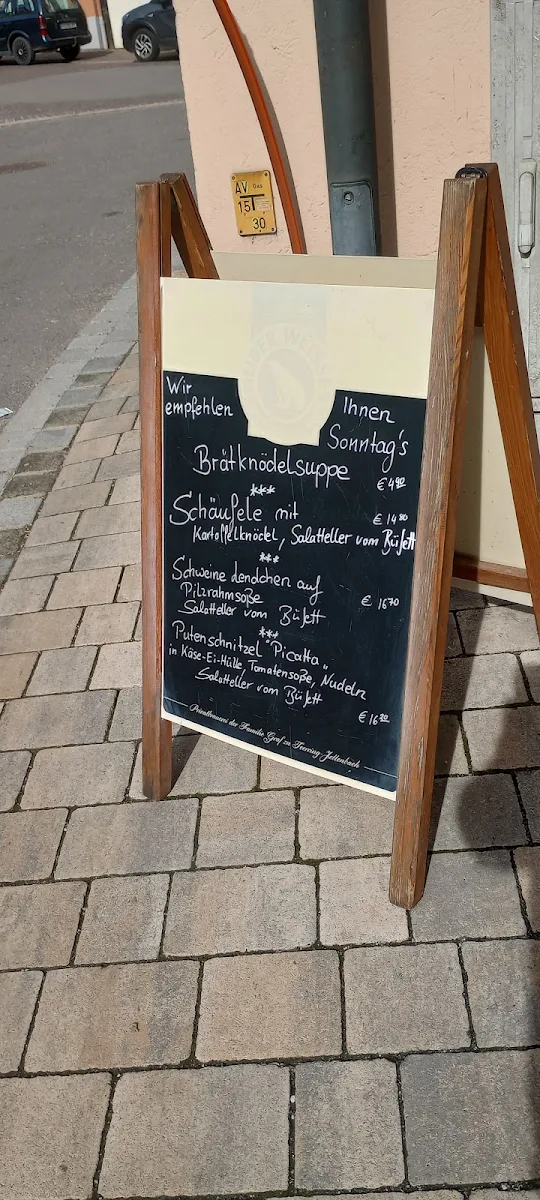 AV Gas
15
30
Wir
empfehlen
Ihnen
Sonntag's
Brätknödelsuppe
€ 4 90
***
Schäufele mit
€ 14 80
Kartoffelknödel, Salatteller vom Büfett
***
Schweine lendchen auf
Pilzrahmsoße
€ 16 70
Salatteller vom Büfett
***
Putenschnitzel "Picatta"
in Käse-Ei-Hülle, Tomatensoße, Nudeln
Salatteller vom Büfett
Privatbrauerei der Familie Graf zu Toerring-Jettenbach